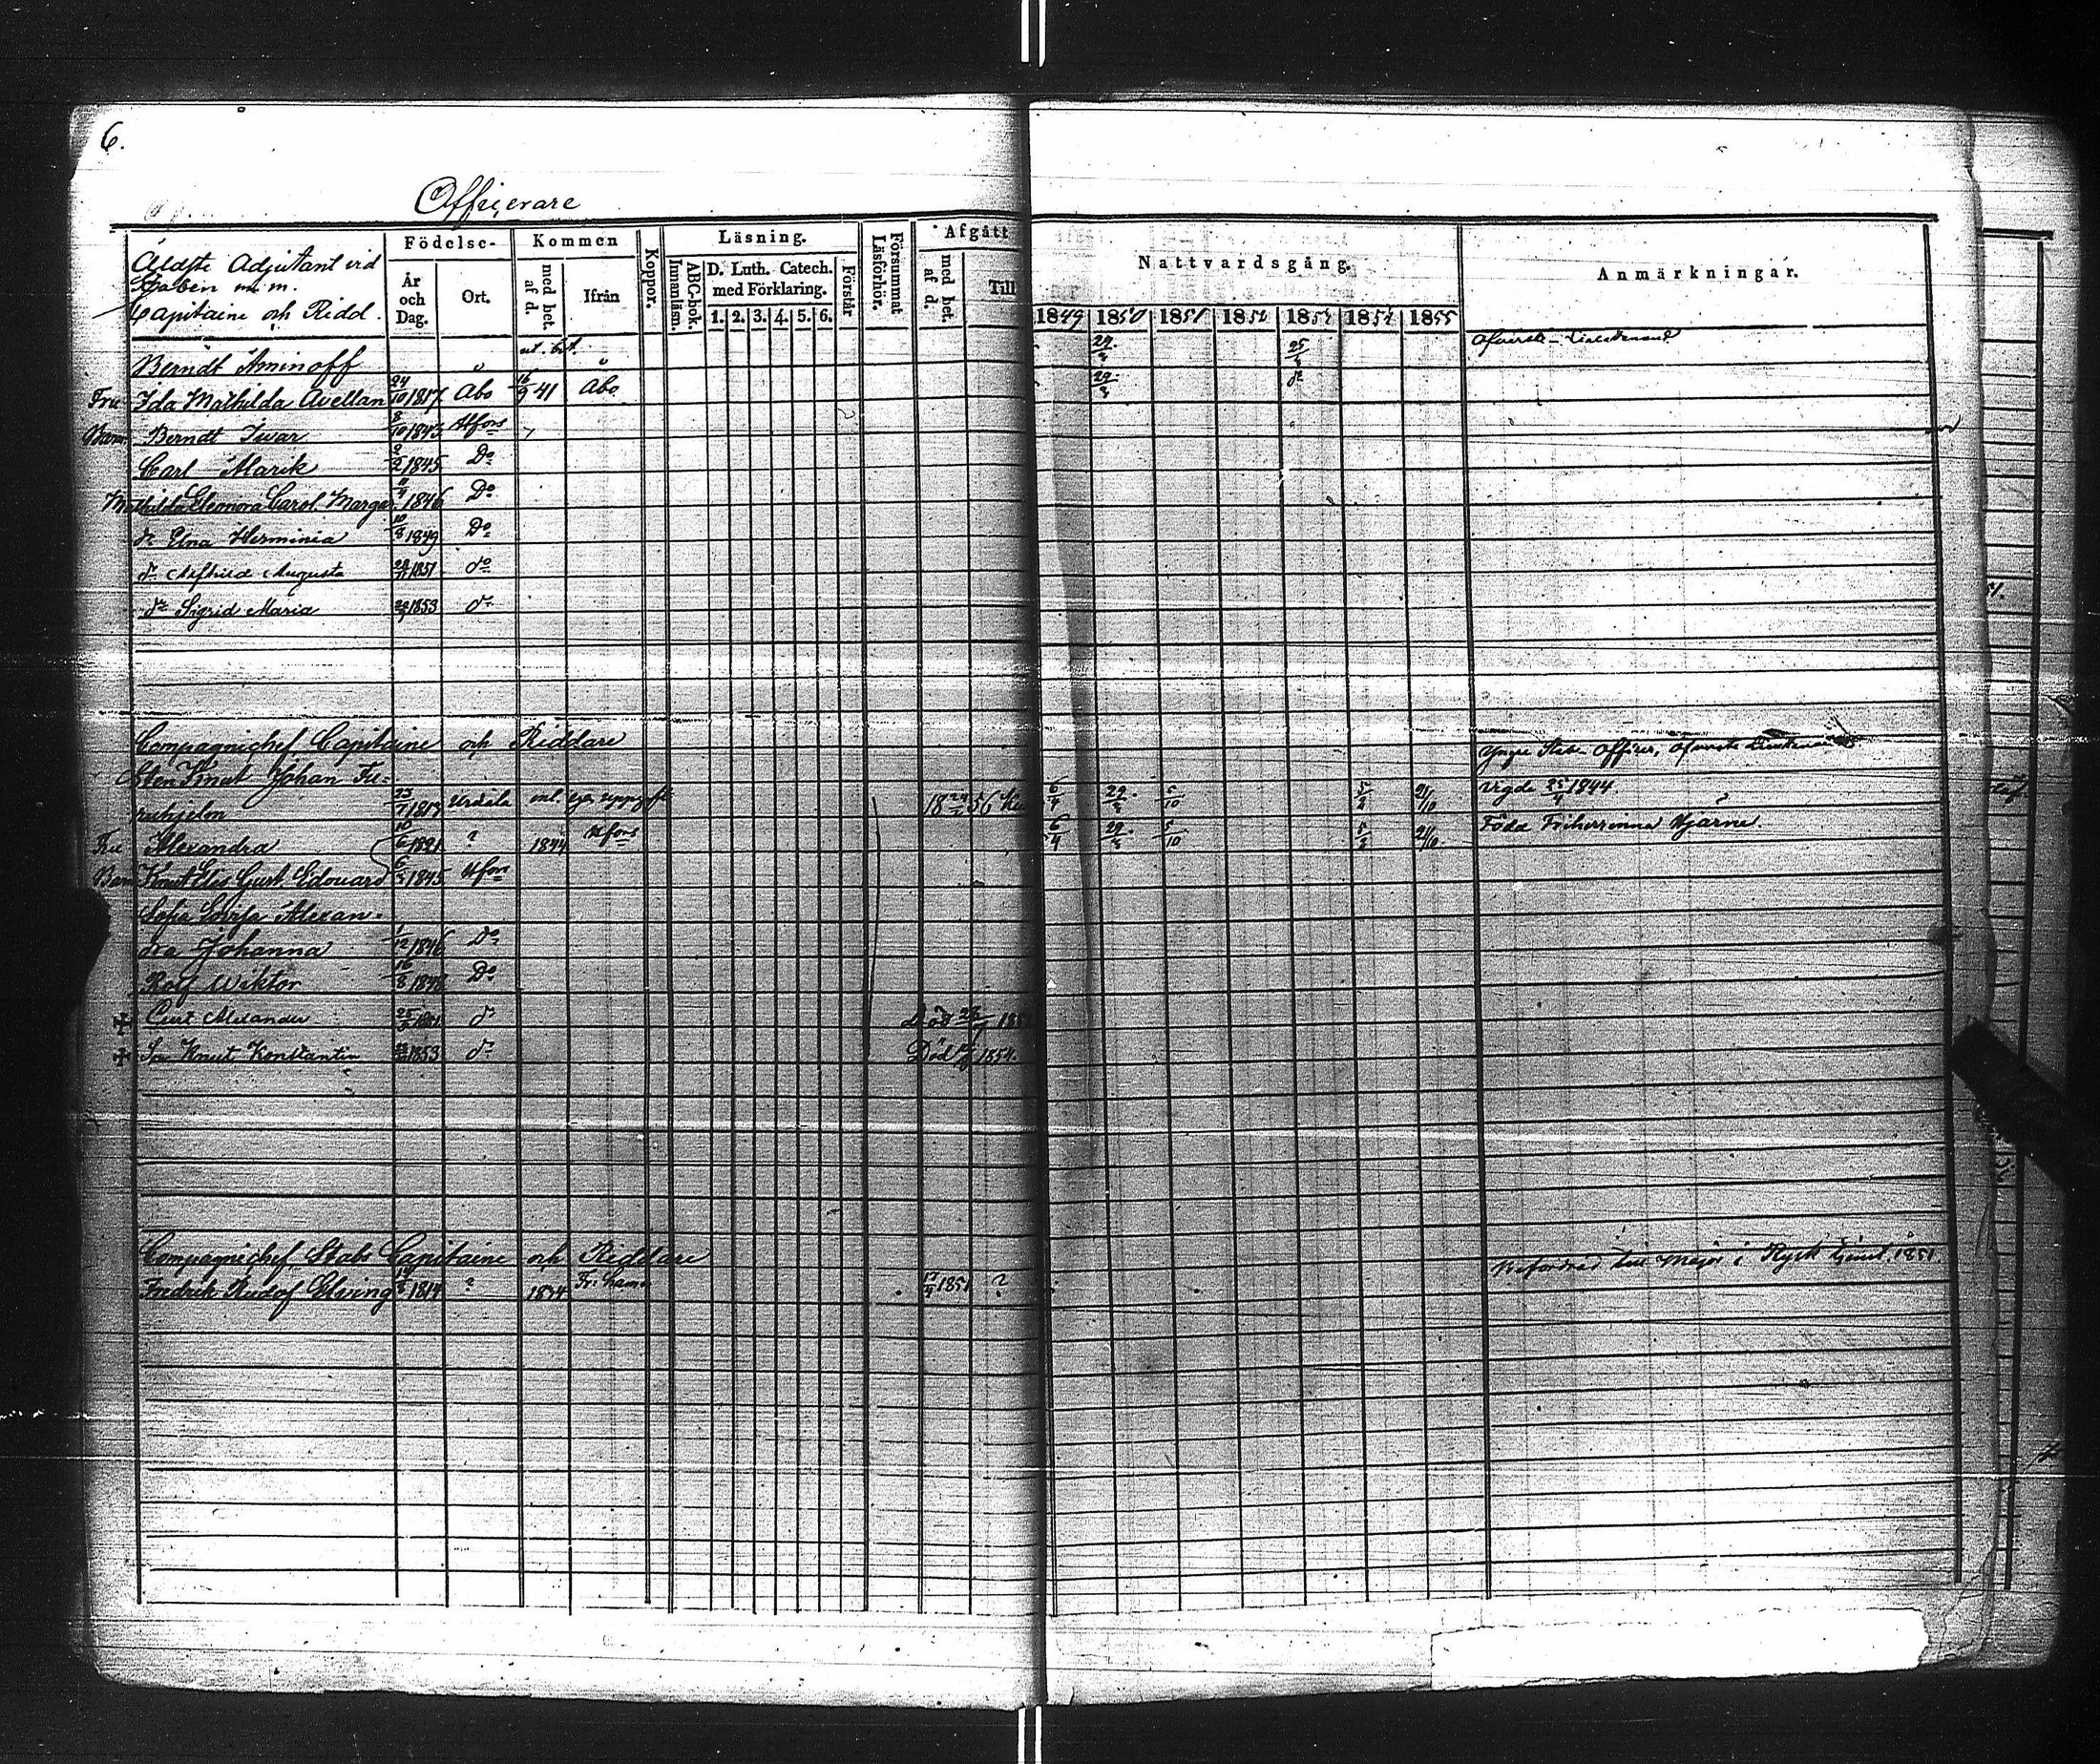 6.
Officerare
Äldste Adjutant vid
Staben m.m.
Capitaine och Ridd.
Födelse-
År och Dag.
Ort.
Kommen
med bet. af d.
Ifrån
Koppor.
Läsning.
Innanläsn.
ABC-bok.
D. Luth. Catech. med Förklaring.
1. 2. 3. 4. 5. 6.
Förstår
Försummat Läsförhör.
Afgått
med bet. af d.
Till
Nattvardsgång.
1849 1850 1851 1852 1853 1854 1855
Anmärkningar.
Berndt Aminoff " ut. bet. " 29/3 25/3 Öfverste-Lieutenant
Fru Ida Mathilda Avellan 24/10 1817 Åbo 16/9 41 Åbo 29/3 do
Barn Berndt Iwar 8/10 1843 Hfors
Carl Alarik 9/2 1845 Do
Mathilda Eleonora Carol. Margar. 11/4 1846 Do
dr Elna Herminia 10/8 1849 Do
dr Augusta 1851 do
dr Sigrid Maria 1853 do
Compagnichef Capitaine och Riddare Yngre Stabs-Officer, Öfverste Lieutenant
Sten Knut Johan Fu-
ruhjelm 23/7 1817 Urdiala enl. egen uppgift 18 56 6/4 29/3 5/10 5/2 21/10 Vigde 25/4 1844
Fru Alexandra 10/6 1821 ? 1844 Hfors 6/4 29/3 5/10 5/2 21/10 Född Friherrinna Hjärne
Barn Knut Elis Gust. Edouard 1845 Hfors
Sofia Lovisa Alexan-
dra Johanna 1/12 1846 Do
Rolf Wiktor 16/8 1848 Do
+ Curt Alexander 25/ do Död
+ Son Knut Konstantin 1853 do Död 1854.
Compagnichef Stabs Capitaine och Riddare Befordrad till Major i Rysk tjenst. 1851.
Fredrik Rudof Elving 1814 ? 1834 Fr:hamn 17/4 1851 ?